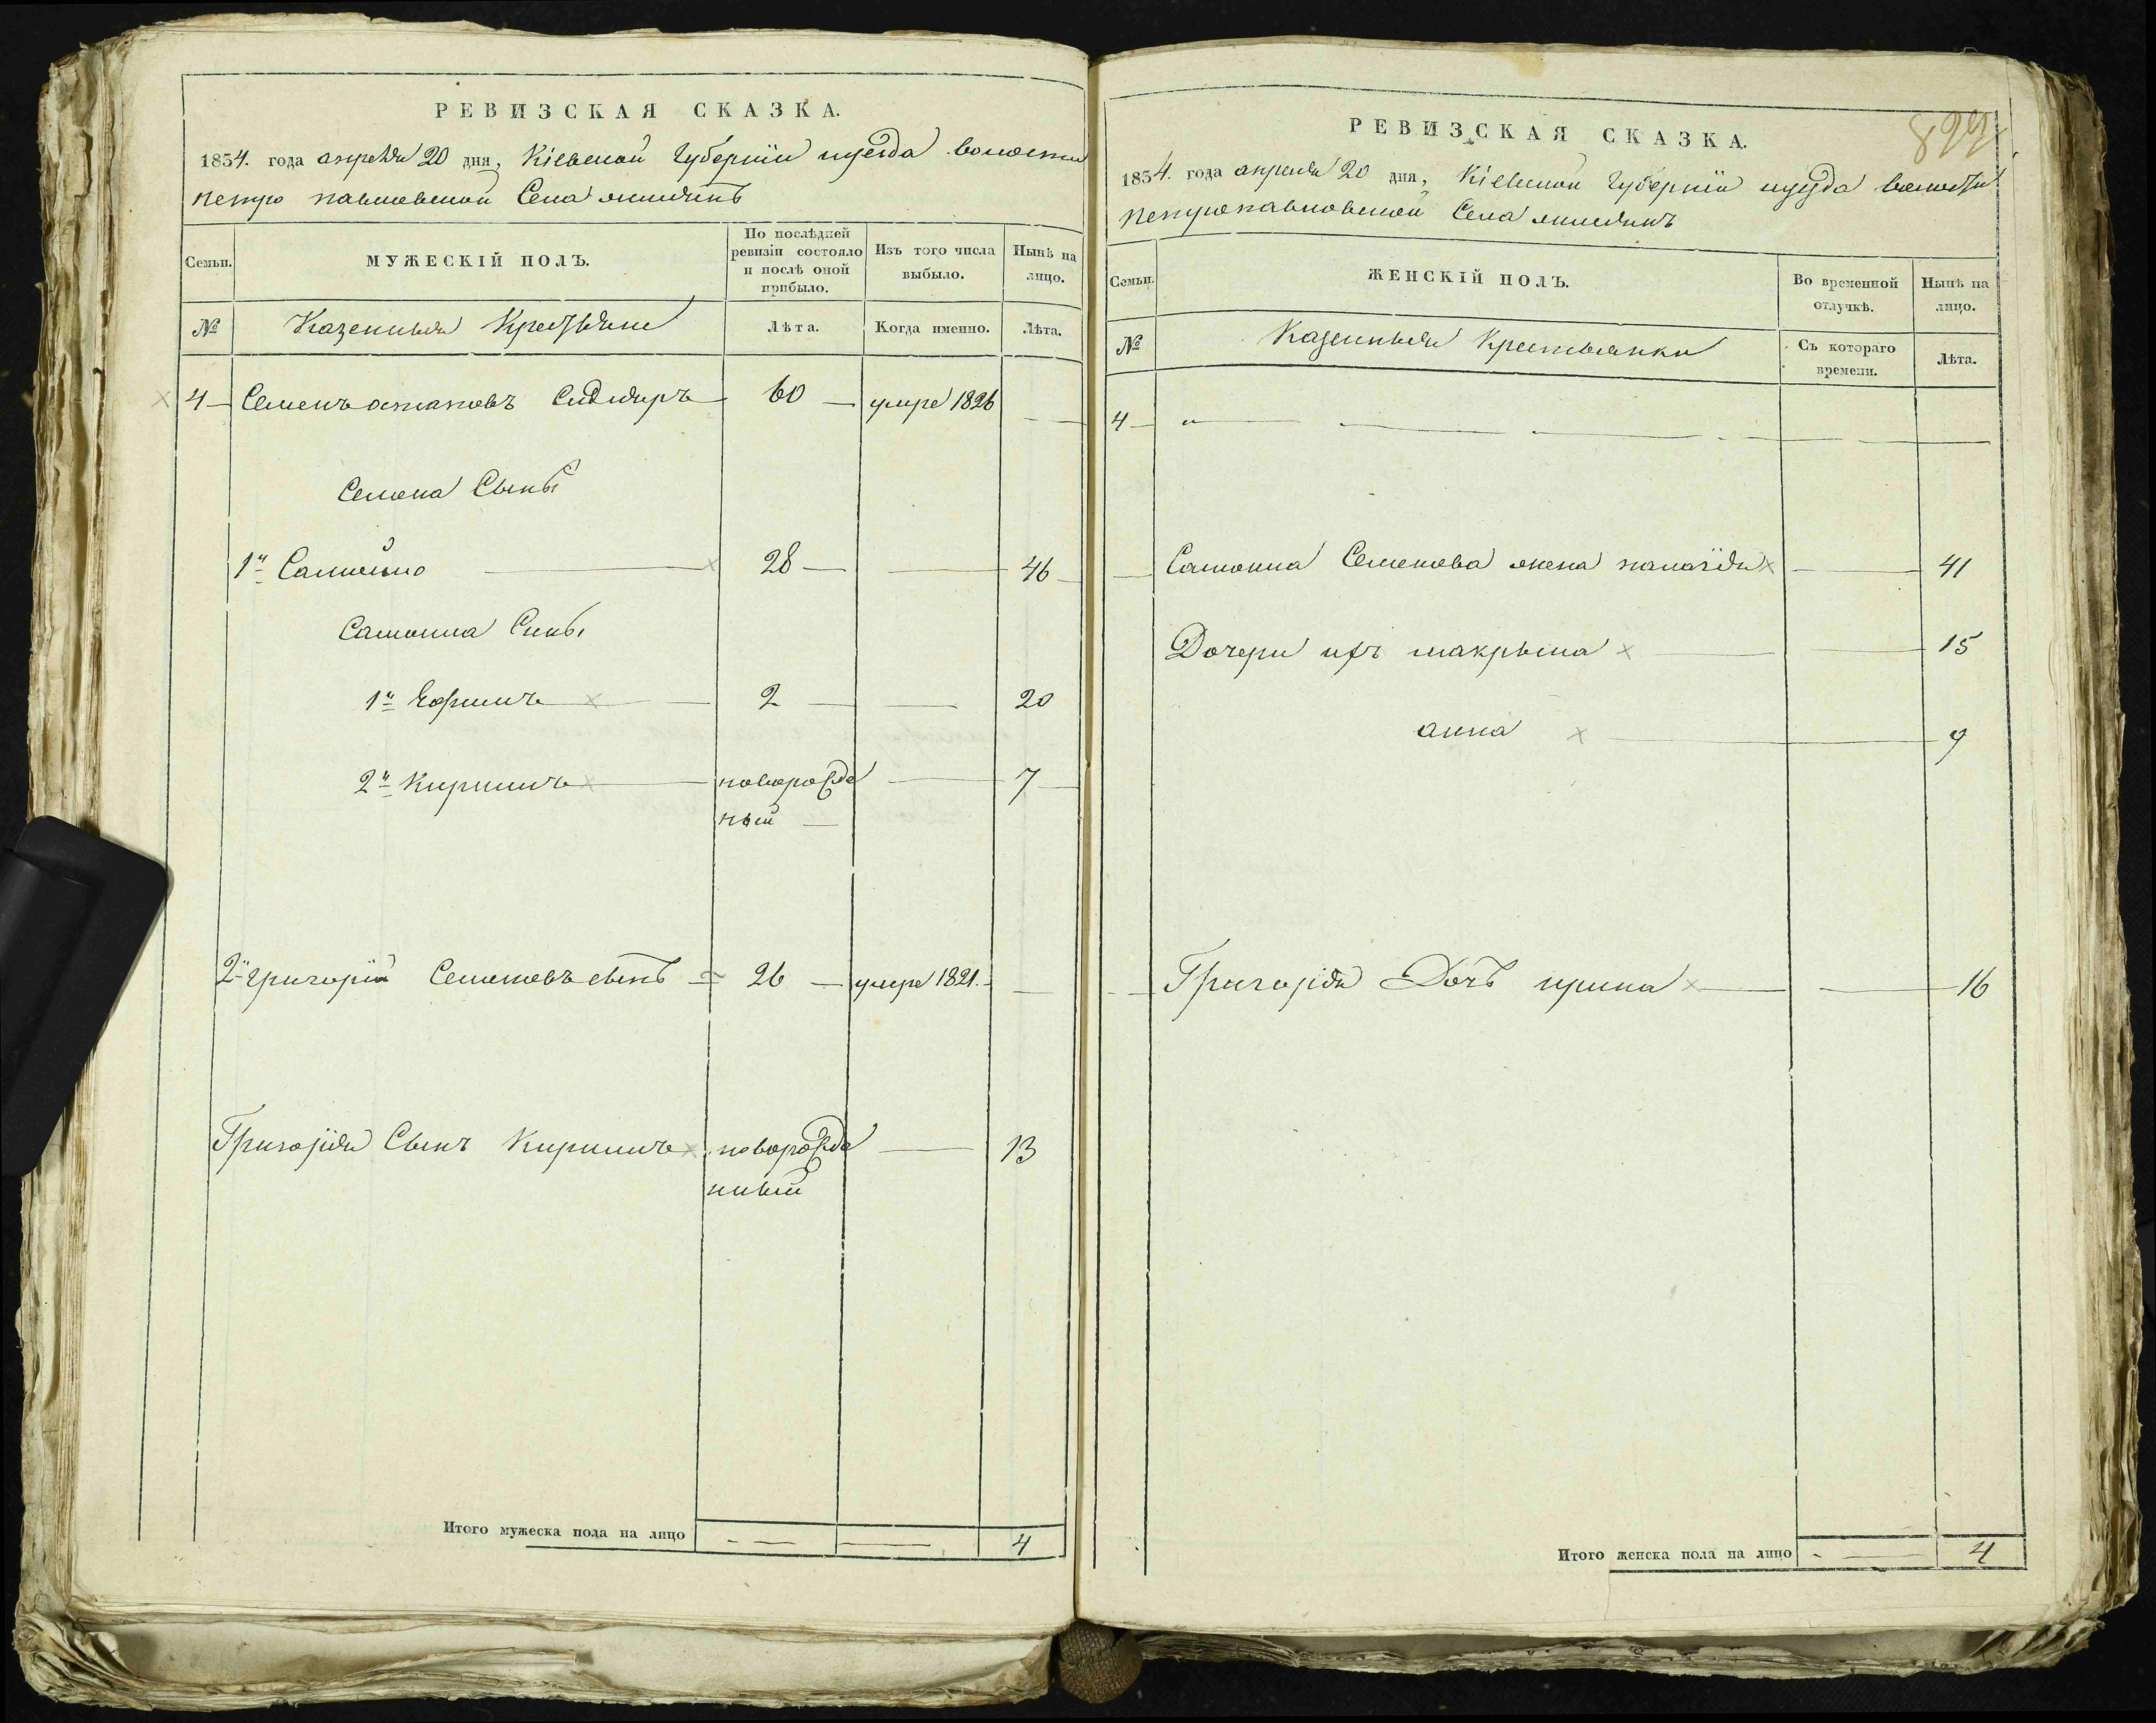 РЕВИЗСКАЯ СКАЗКА.
1834. года апреля 20 дня, Кіевской Губерніи и уезда волости
петро павловской Села
Семьи.
МУЖЕСКІЙ ПОЛЪ.
По послѣдней ревизіи состояло и послѣ оной прибыло.
Изъ того числа выбыло.
Нынѣ на лицо.
№
Казенныя Крестьяне
Лѣта.
Когда именно.
Лѣта.
4 Семенъ остаповъ 60 умре 1826
Семена Сыны
1й Самойло 28 46
Самойла Сыны
1й Ефимъ 2 20
2й Кирилъ новорожде 7
ный
2й григорій Семеновъ сынъ 26 умре 1821.
Григорія Сынъ Кирилъ новорожде 13
нный
Итого мужеска пола на лицо 4
РЕВИЗСКАЯ СКАЗКА.
1834. года апреля 20 дня, Кіевской Губерніи и уезда волости
петропавловской Села
Семьи.
ЖЕНСКІЙ ПОЛЪ.
Во временной отлучкѣ.
Нынѣ на лицо.
№
Казенныя Крестьянки
Съ котораго времени.
Лѣта.
4 „
Самойла Семенова жена палагія 41
Дочери ихъ макрына 15
анна 9
Григорія Дочъ ирина 16
Итого женска пола на лицо 4